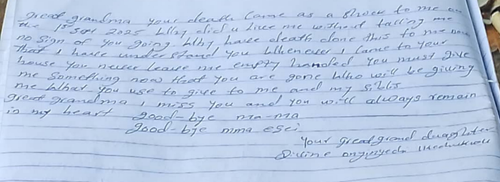 great grandma your death came as a shock to me on
the 1st Sep 2025 Why did u leave me without telling me
no sign of you going Why have death done this to me now
That I have understand you Whenever I came to your
house you never leave me empty handed you must give
me something now that you are gone Who will be giving
me What you use to give to me and my
great grandma I miss you and you will always remain
in my heart good-bye ma-ma
good-bye nma esei
Your great grand
Divine